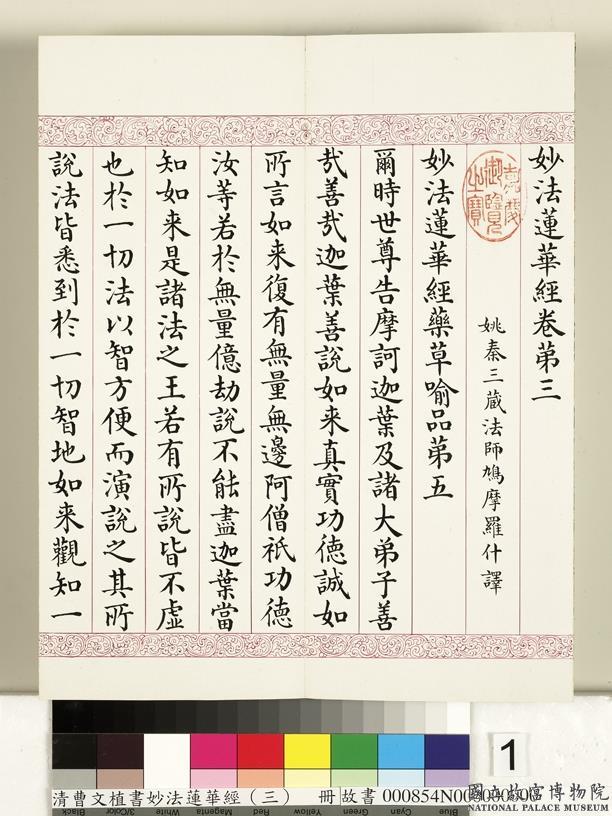 妙法蓮華經卷第三
姚秦三藏法師鳩摩羅什譯
妙法蓮華經藥草喻品第五
爾時世尊告摩訶迦葉及諸大弟子善
哉善哉迦葉善說如来真實功德誠如
所言如来復有無量無邊阿僧祇功德
汝等若於無量億劫說不能盡迦葉當
知如来是諸法之王若有所說皆不虛
也於一切法以智方便而演說之其所
說法皆悉到於一切智地如来觀知一
1
清曹文植書妙法蓮華經（三） 冊 故書
國立故宮博物院
NATIONAL PALACE MUSEUM